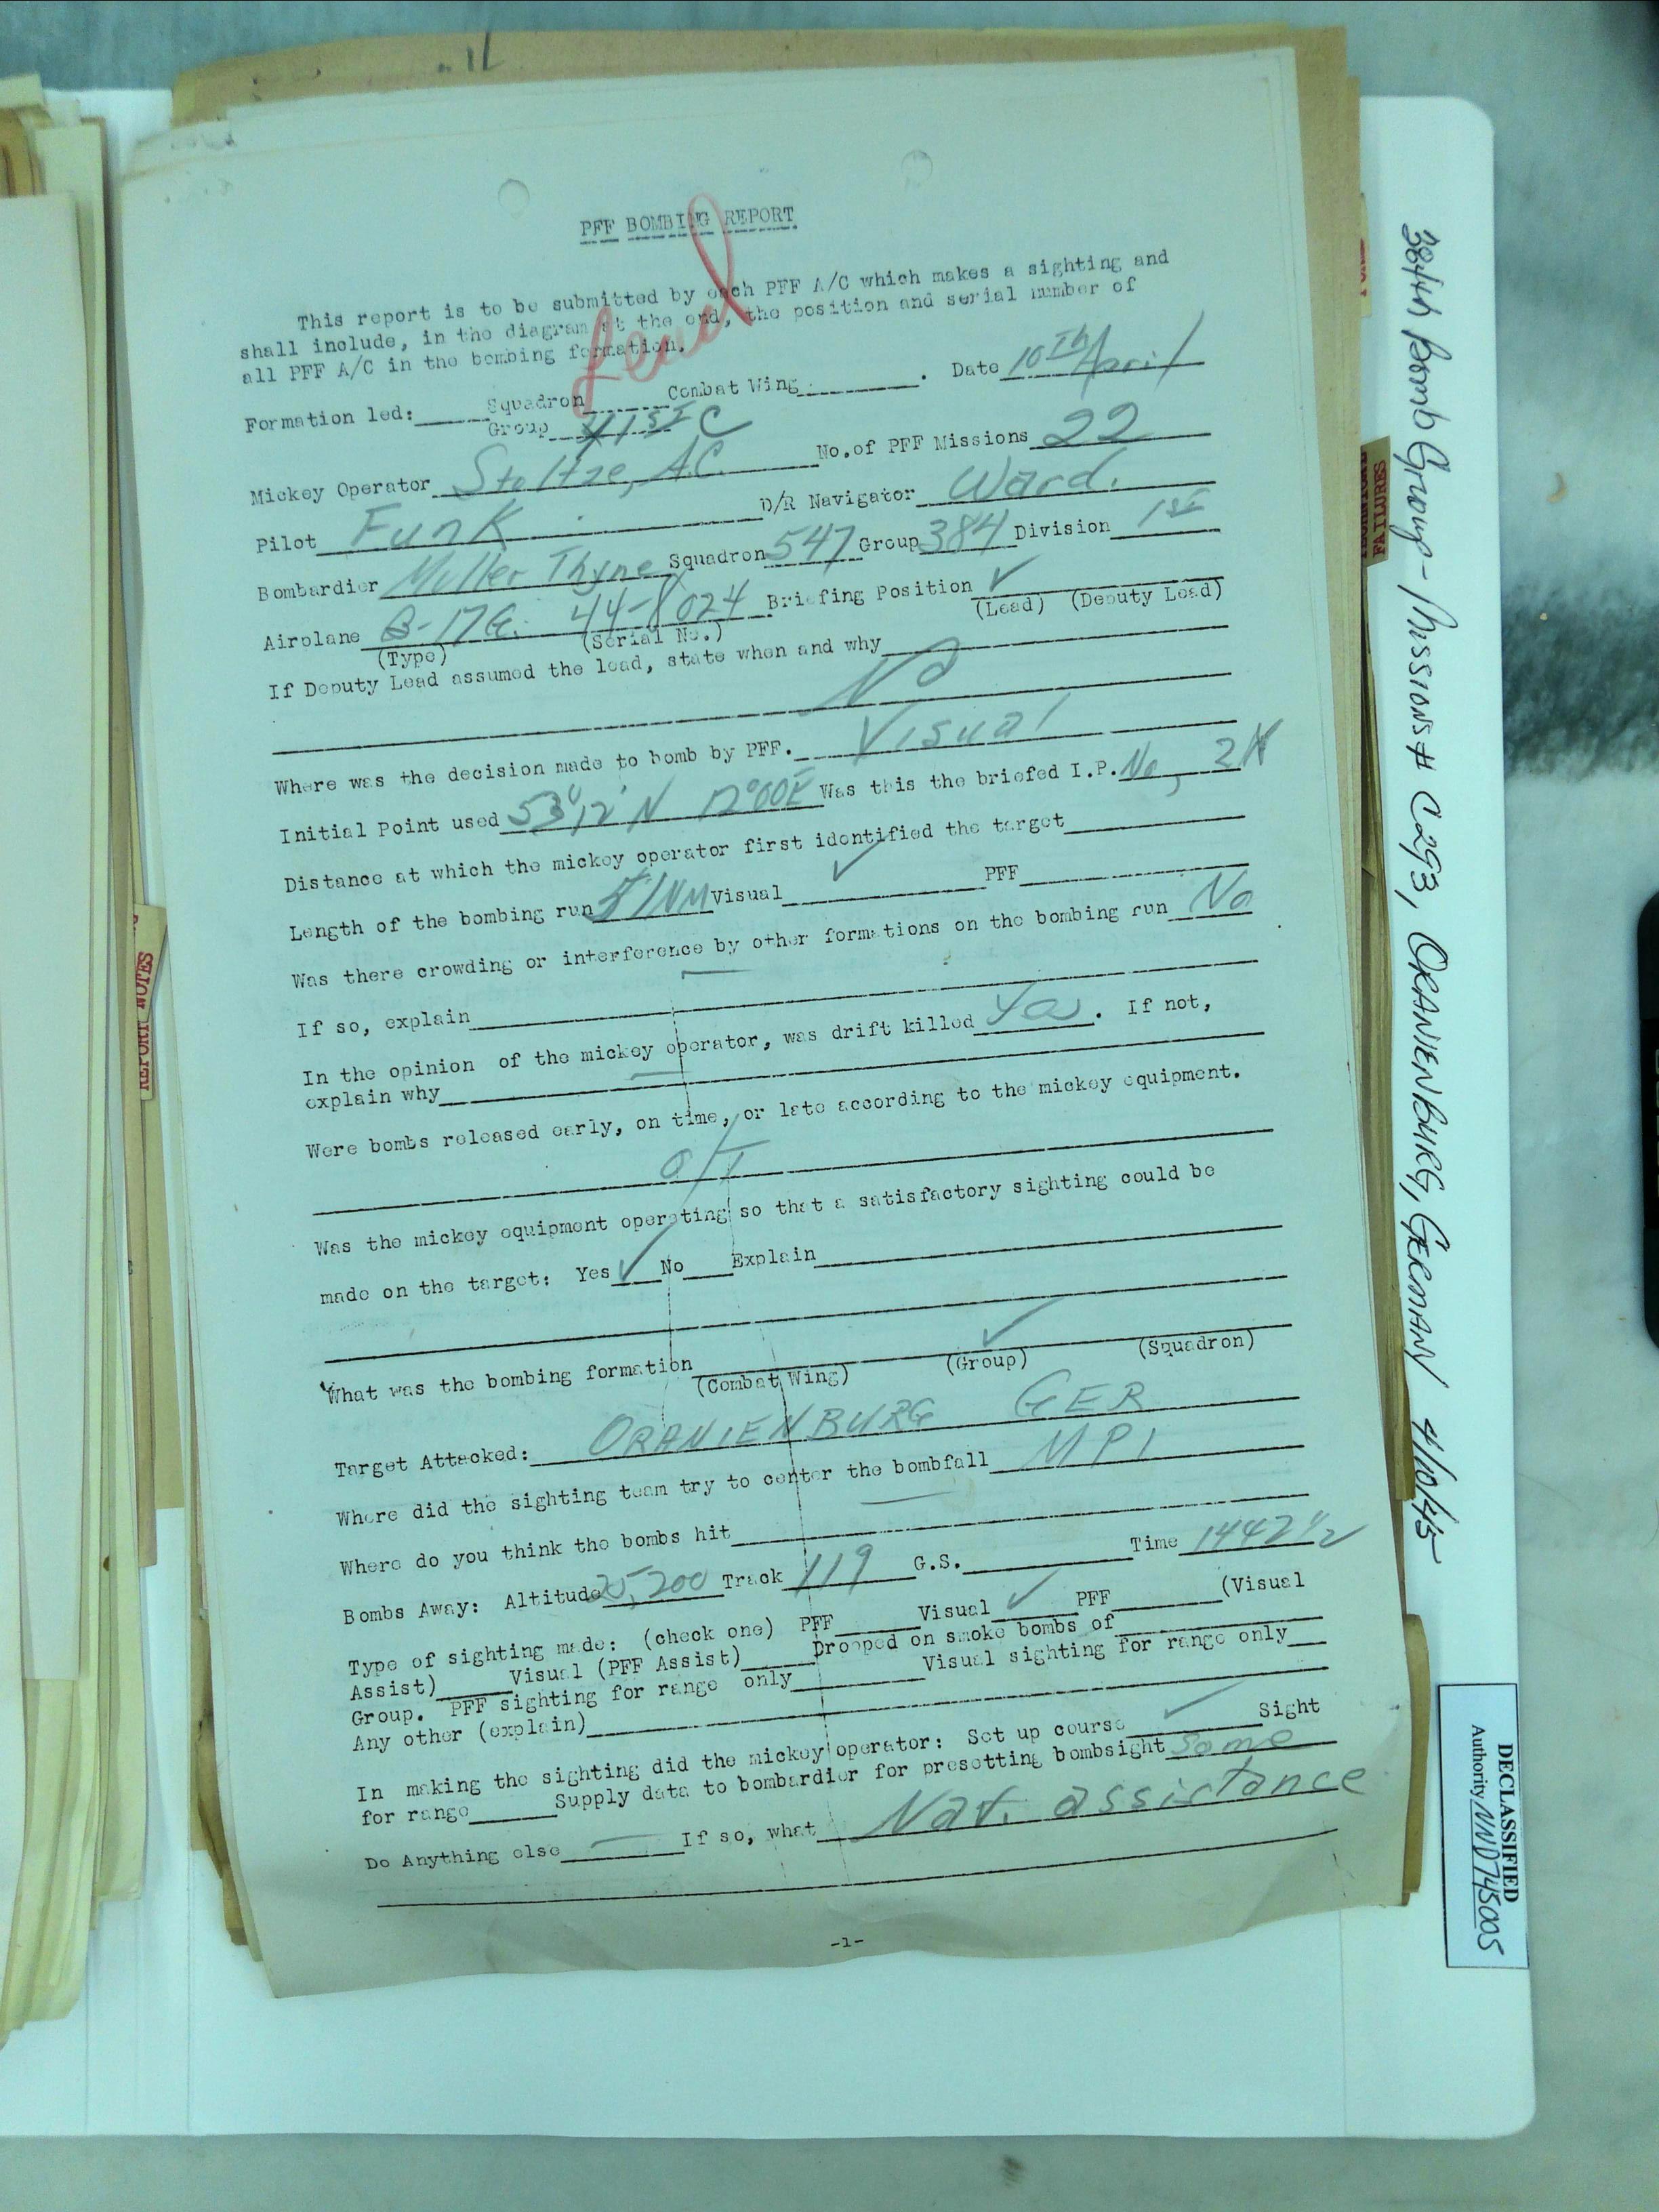 PFF BOMBING REPORT
Lead
This report is to be submitted by each PFF A/C which makes a sighting and
shall include, in the diagram at the end, the position and serial number of
all PFF A/C in the bombing formation.
Formation led: Squadron Combat Wing . Date 10th April
Group 41st C
Mickey Operator Stoltze, A.C. No. of PFF Missions 22
Pilot Funk D/R Navigator Ward.
Bombardier Muller Thyne Squadron 547 Group 384 Division 1st
Airplane B-17G. 44-8024 Briefing Position ✓
(Type) (Serial No.) (Lead) (Deputy Lead)
If Deputy Lead assumed the lead, state when and why
No
Where was the decision made to bomb by PFF. Visual
Initial Point used 53°12'N 12°00E Was this the briefed I.P. No,
Distance at which the mickey operator first identified the target
Length of the bombing run 51NM Visual ✓ PFF
Was there crowding or interference by other formations on the bombing run No
If so, explain
In the opinion of the mickey operator, was drift killed Yes. If not,
explain why
Were bombs released early, on time, or late according to the mickey equipment.
O/T
Was the mickey equipment operating so that a satisfactory sighting could be
made on the target: Yes ✓ No Explain
What was the bombing formation ✓
(Combat Wing) (Group) (Squadron)
Target Attacked: ORANIENBURG GER
Where did the sighting team try to center the bombfall MPI
Where do you think the bombs hit
Bombs Away: Altitude 25,200 Track 119 G.S. Time 1442 1/2
Type of sighting made: (check one) PFF Visual ✓ PFF (Visual
Assist) Visual (PFF Assist) Dropped on smoke bombs of
Group. PFF sighting for range only Visual sighting for range only
Any other (explain)
In making the sighting did the mickey operator: Set up course ✓ Sight
for range Supply data to bombardier for presetting bombsight Some
Do Anything else — If so, what Nav. assistance
-1-
384th Bomb Group - Missions # C293, ORANIENBURG, GERMANY 4/10/45
DECLASSIFIED
Authority NND745005
TECHNICAL
FAILURES
REPORT NOTES